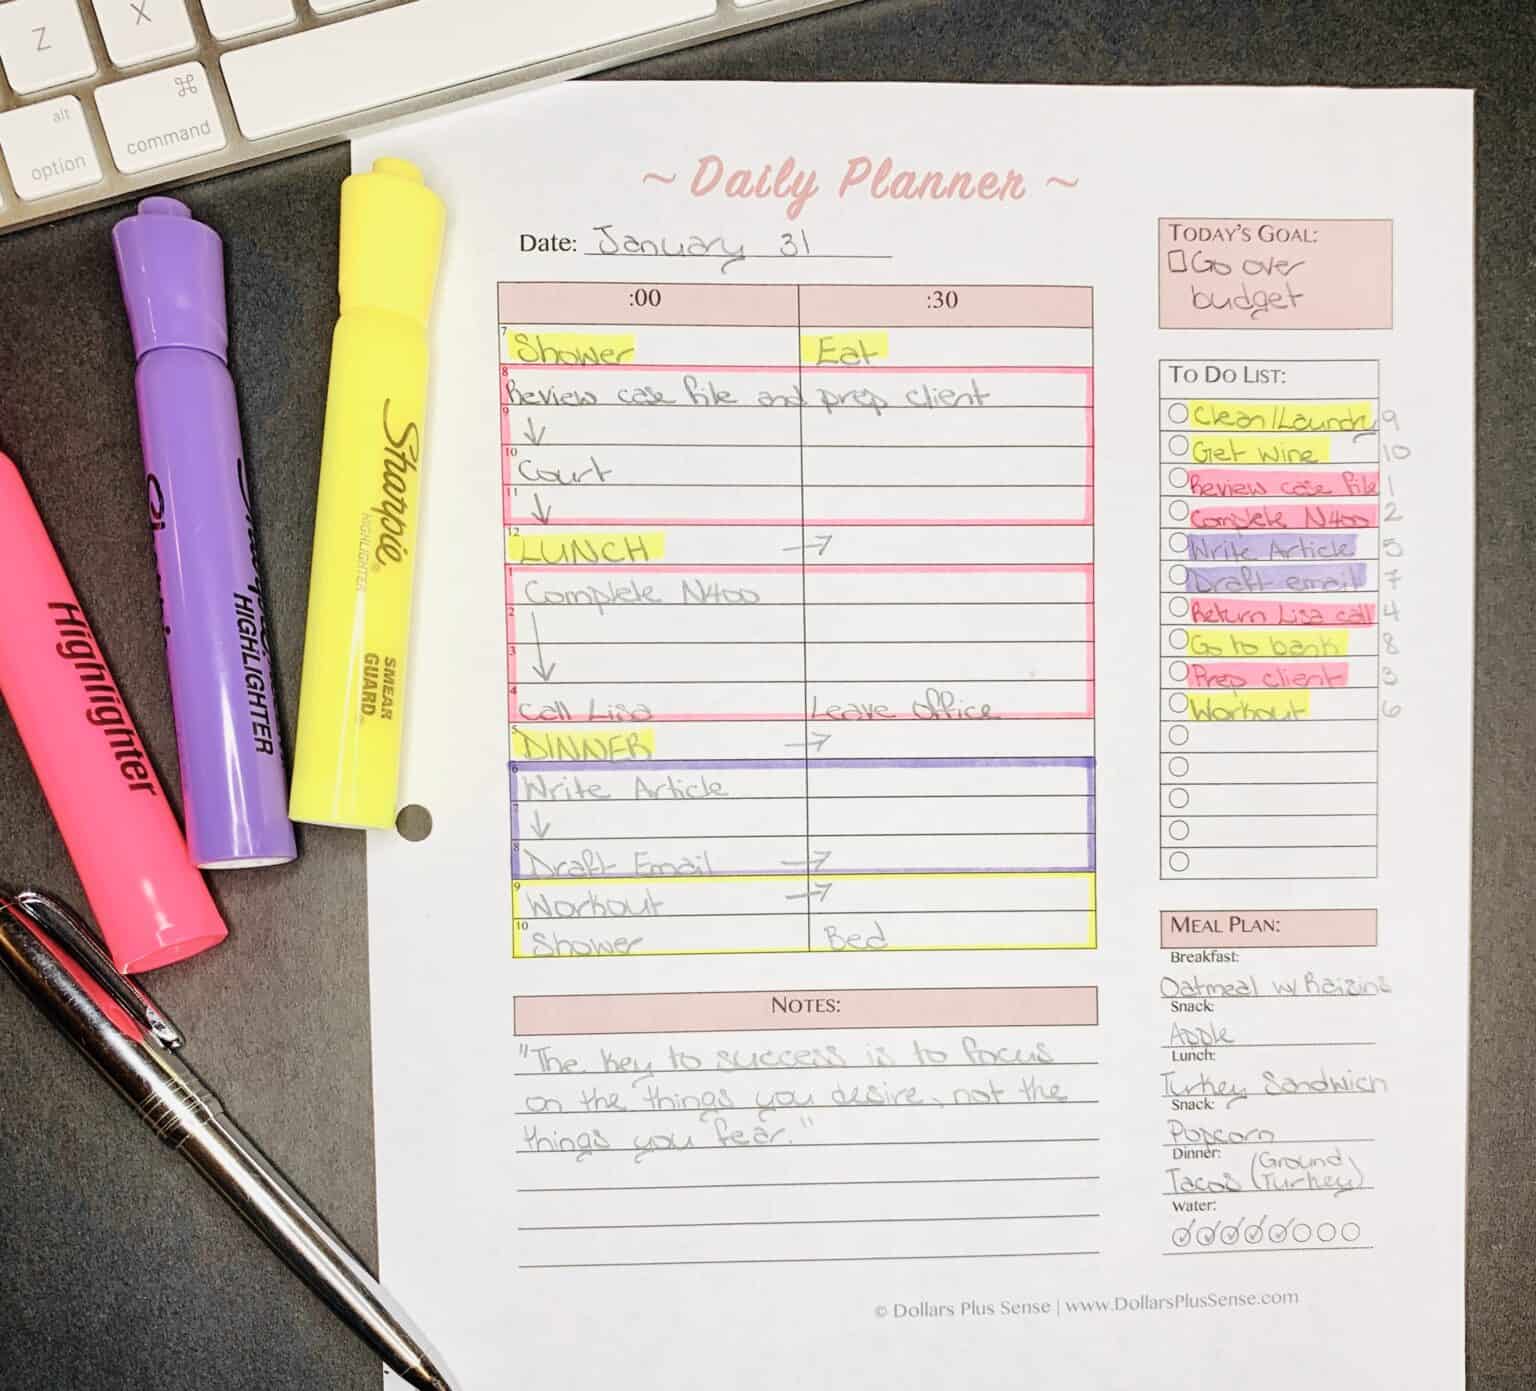 Z
X
alt
option
⌘
command
Highlighter
HIGHLIGHTER
Sharpie
HIGHLIGHTER
SMEAR
GUARD
~ Daily Planner ~
Date: January 31
:00 :30
7 Shower Eat
8 Review case file and prep client
9 ↓
10 Court
11 ↓
12 LUNCH →
1 Complete N400
2
3 ↓
4 Call Lisa Leave Office
5 DINNER →
6 Write Article
7 ↓
8 Draft Email →
9 Workout →
10 Shower Bed
NOTES:
"The key to success is to focus
on the things you desire, not the
things you fear."
TODAY'S GOAL:
Go over
budget
TO DO LIST:
Clean/Laundry 9
Get wine 10
Review case file 1
Complete N400 2
Write Article 5
Draft email 7
Return Lisa call 4
Go to bank 8
Prep client 3
Workout 6
MEAL PLAN:
Breakfast:
Oatmeal w/ Raizins
Snack:
Apple
Lunch:
Turkey Sandwich
Snack:
Popcorn
Dinner:
Tacos (Ground
Turkey)
Water:
© Dollars Plus Sense | www.DollarsPlusSense.com